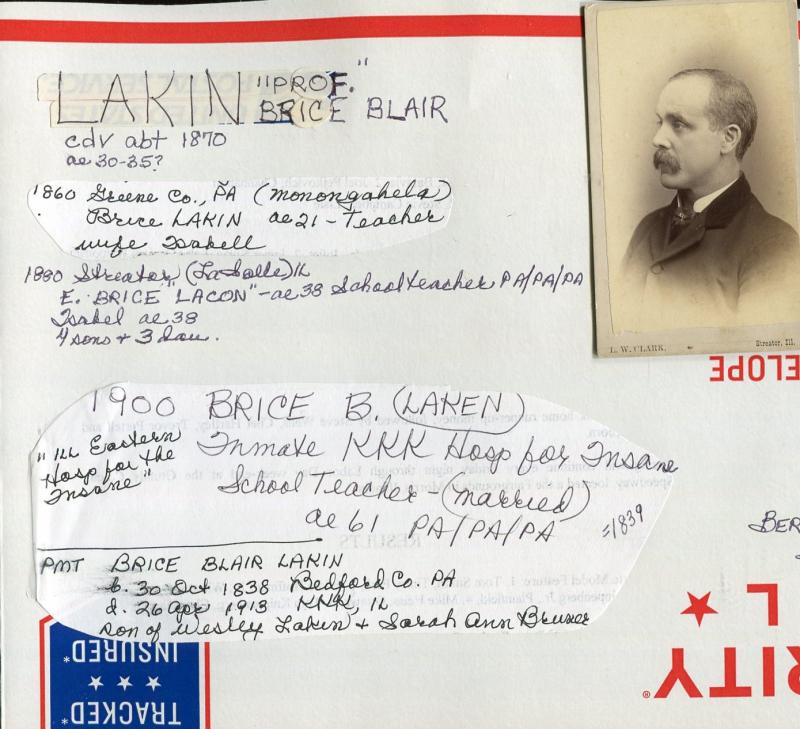 LAKIN "PROF."
BRICE BLAIR
cdv abt 1870
ae 30-35?
1860 Greene Co., PA (Monongahela)
Brice LAKIN ae 21 - Teacher
wife Isabell
1880 Streator (LaSalle) IL
E. BRICE "LACON" - ae 38 School teacher PA/PA/PA
Isabel ae 38
4 sons + 3 dau.
L. W. CLARK. Streator, Ill.
ELOPE
1900 BRICE B. (LAKEN)
"ILL Eastern
Hosp for the
Insane"
Inmate KKK Hosp for Insane
School Teacher - (married)
ae 61 PA/PA/PA =1839
PMT BRICE BLAIR LAKIN
b. 30 Oct 1838 Bedford Co. PA
d. 26 apr 1913 KKK, IL
son of Wesley Lakin + Sarah Ann Bruner
BER
RESULTS
L
RITY
INSURED*
TRACKED*